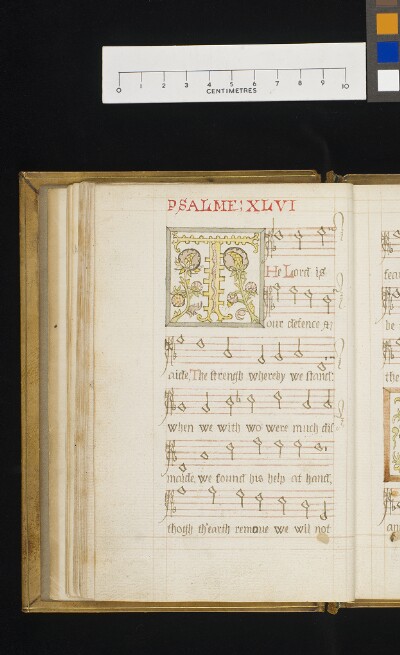 0 1 2 3 4 5 6 7 8 9 10
CENTIMETRES
PSALME: XLVI
THe Lord is
our defence &
aide, The strength whereby we stand:
when we with wo were much dis
maide, we found his help at hand,
thogh th'earth remoue we wil not
fea
be
the
an